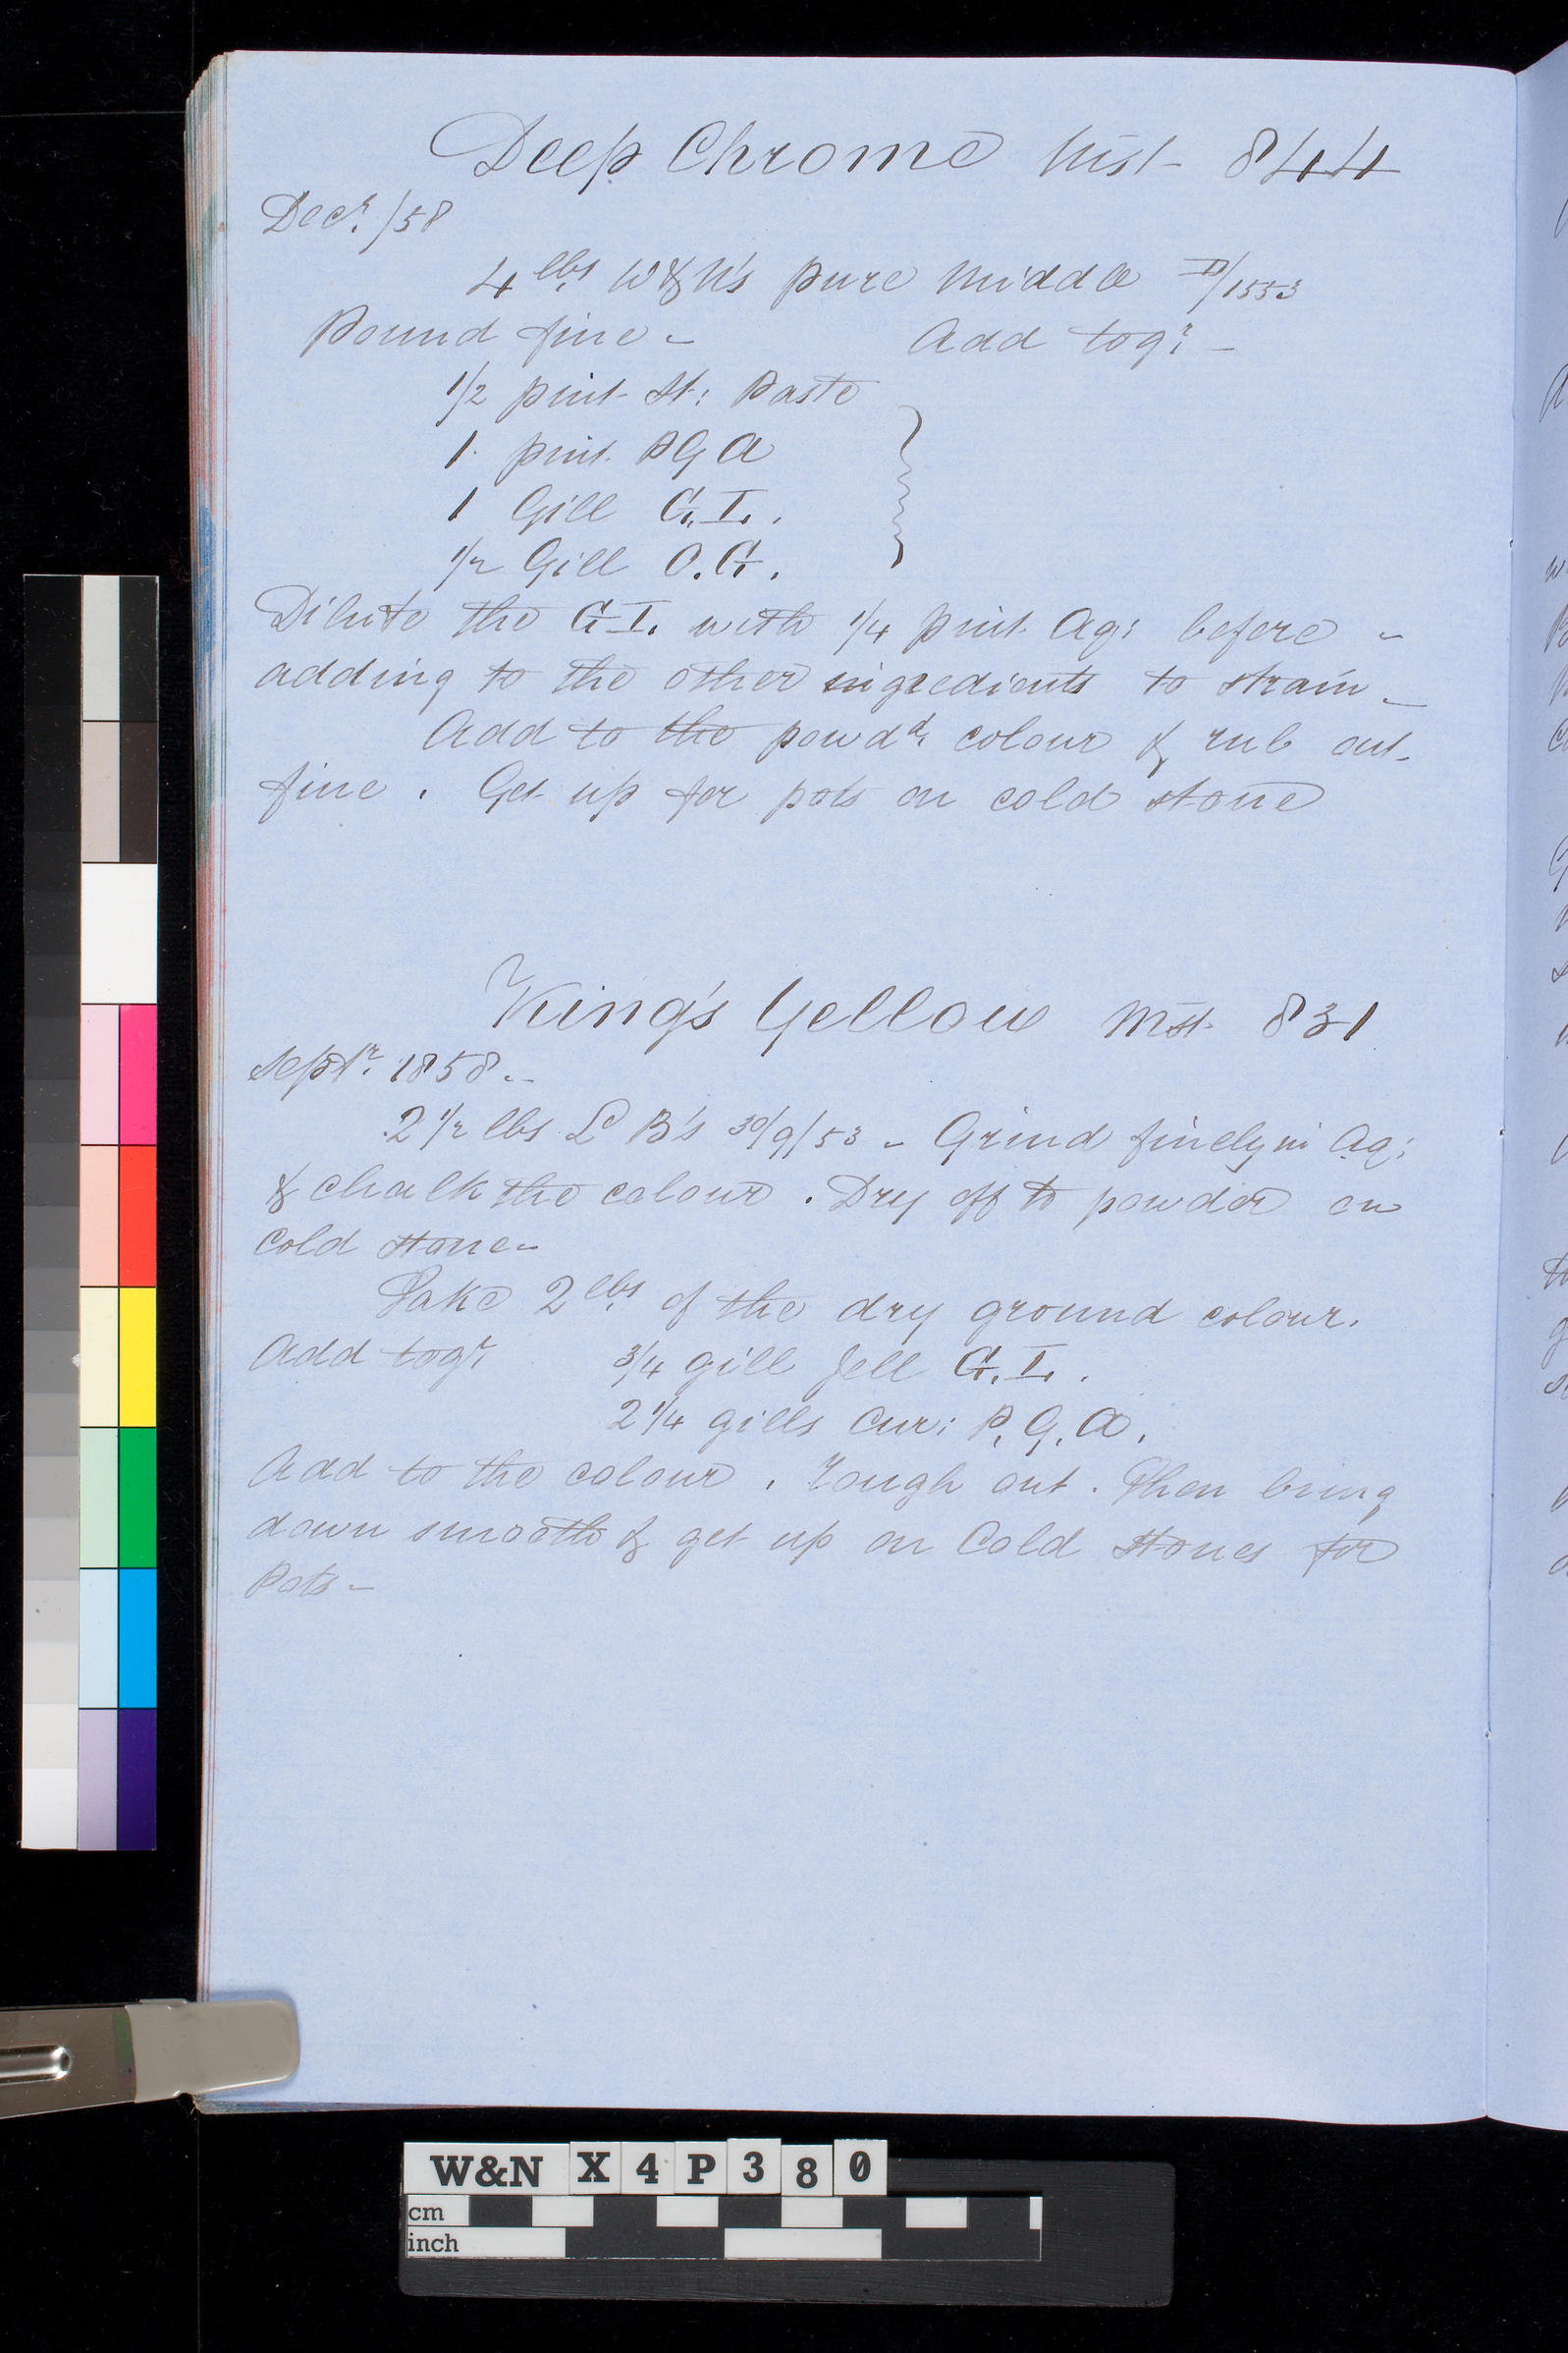 Deep Chrome Mist 844
Decr. /58
4 lbs. W & N's pure Middle II/1553
Pound fine - Add togr: -
1/2 pint St: Paste
1 pint PGA
1 Gill G.I.
1/2 Gill O.G.
Dilute the G.I. with 1/4 pint Aq: before -
adding to the other ingredients to strain -
Add to the powdd. colour & rub out
fine. Get up for pots on cold stone
King's Yellow Mst. 831
Septr. 1858.-
2 1/2 lbs L B's 30/9/53 - Grind finely in Aq:
& chalk the colour. Dry off to powder on
cold stone-
Take 2 lbs. of the dry ground colour.
Add togr. 3/4 gill Jell G.I.
2 1/4 gills Cur: P.G.A.
Add to the colour. Rough out. Then bring
down smooth & get up on Cold Stones for
Pots -
W&N X 4 P 3 8 0
cm
inch